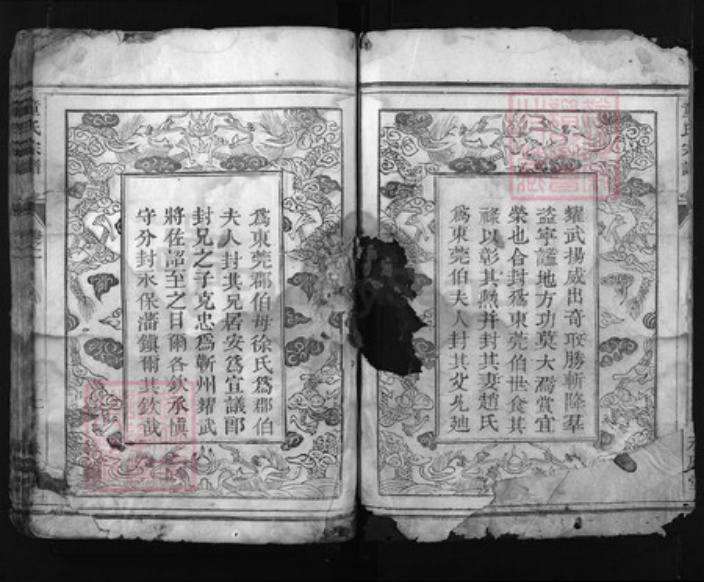 耀武揚威出奇取勝斬降羣
盜寧謐地方功莫大焉賞宜
榮也合封爲東莞伯世食其
祿以彰其勲并封其妻趙氏
爲東莞伯夫人封其父
爲東莞郡伯母徐氏爲郡伯
夫人封其兄居安爲宣議郎
封兄之子克忠爲蘄州耀武
將佐詔至之日爾各欽承愼
守分封永保藩鎮爾其欽哉
氏宗譜